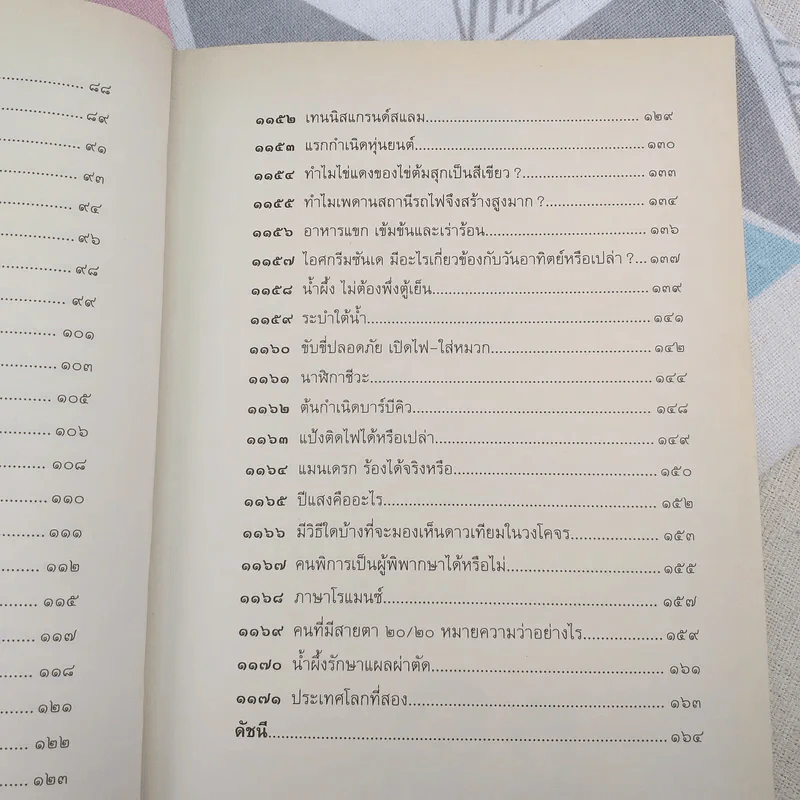 ........ ๘๘
........ ๘๙
........ ๙๑
........ ๙๓
........ ๙๔
........ ๙๖
........ ๙๘
........ ๙๙
........ ๑๐๑
........ ๑๐๓
........ ๑๐๕
........ ๑๐๖
........ ๑๐๘
........ ๑๑๐
........ ๑๑๑
........ ๑๑๒
........ ๑๑๕
........ ๑๑๗
........ ๑๑๘
........ ๑๒๑
........ ๑๒๒
........ ๑๒๓
๑๑๕๒ เทนนิสแกรนด์สแลม........ ๑๒๙
๑๑๕๓ แรกกำเนิดหุ่นยนต์........ ๑๓๐
๑๑๕๔ ทำไมไข่แดงของไข่ต้มสุกเป็นสีเขียว ?........ ๑๓๓
๑๑๕๕ ทำไมเพดานสถานีรถไฟจึงสร้างสูงมาก ?........ ๑๓๔
๑๑๕๖ อาหารแขก เข้มข้นและเร่าร้อน........ ๑๓๖
๑๑๕๗ ไอศกรีมซันเด มีอะไรเกี่ยวข้องกับวันอาทิตย์หรือเปล่า ?... ๑๓๗
๑๑๕๘ น้ำผึ้ง ไม่ต้องพึ่งตู้เย็น........ ๑๓๙
๑๑๕๙ ระบำใต้น้ำ........ ๑๔๑
๑๑๖๐ ขับขี่ปลอดภัย เปิดไฟ-ใส่หมวก........ ๑๔๒
๑๑๖๑ นาฬิกาชีวะ........ ๑๔๔
๑๑๖๒ ต้นกำเนิดบาร์บีคิว........ ๑๔๘
๑๑๖๓ แป้งติดไฟได้หรือเปล่า........ ๑๔๙
๑๑๖๔ แมนเดรก ร้องได้จริงหรือ........ ๑๕๐
๑๑๖๕ ปีแสงคืออะไร........ ๑๕๒
๑๑๖๖ มีวิธีใดบ้างที่จะมองเห็นดาวเทียมในวงโคจร........ ๑๕๓
๑๑๖๗ คนพิการเป็นผู้พิพากษาได้หรือไม่........ ๑๕๕
๑๑๖๘ ภาษาโรแมนซ์........ ๑๕๗
๑๑๖๙ คนที่มีสายตา ๒๐/๒๐ หมายความว่าอย่างไร........ ๑๕๙
๑๑๗๐ น้ำผึ้งรักษาแผลผ่าตัด........ ๑๖๑
๑๑๗๑ ประเทศโลกที่สอง........ ๑๖๓
ดัชนี........ ๑๖๔